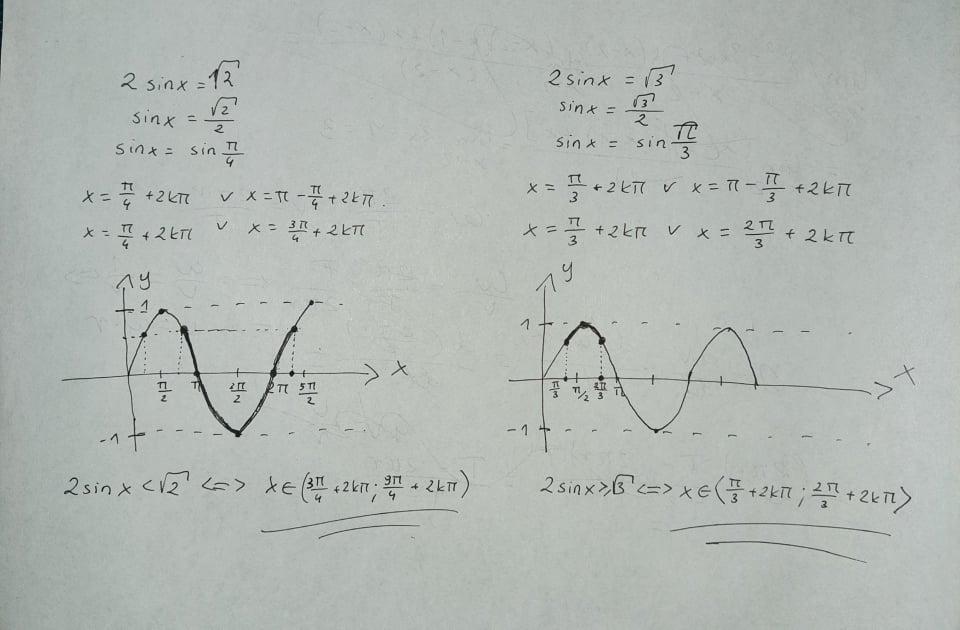 2 sinx = √2
sinx = √2/2
sinx = sin π/4
x = π/4 + 2kπ ∨ x = π - π/4 + 2kπ.
x = π/4 + 2kπ ∨ x = 3π/4 + 2kπ
y
1
x
π/2 π 2π/2 2π 5π/2
-1
2 sin x < √2 <=> x ∈ (3π/4 + 2kπ ; 9π/4 + 2kπ)
2 sinx = √3
sinx = √3/2
sinx = sin π/3
x = π/3 + 2kπ ∨ x = π - π/3 + 2kπ
x = π/3 + 2kπ ∨ x = 2π/3 + 2kπ
y
1
x
π/3 π/2 2π/3 π
-1
2 sinx ⩾ √3 <=> x ∈ ⟨π/3 + 2kπ ; 2π/3 + 2kπ⟩